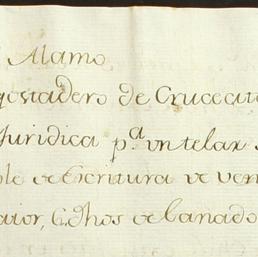 Alamo
gostadero de Crucecita
Juridica p.ª vn telax
ble de Escritura de ven
aior, C. dhos de Canado